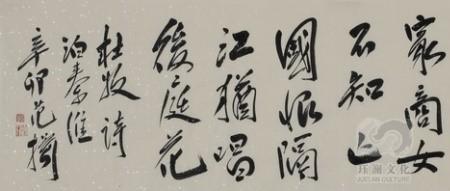 家商女
不知亡
國恨隔
江猶唱
後庭花
杜牧詩
泊秦淮
辛卯范揚
文化
JUELAN CULTURE